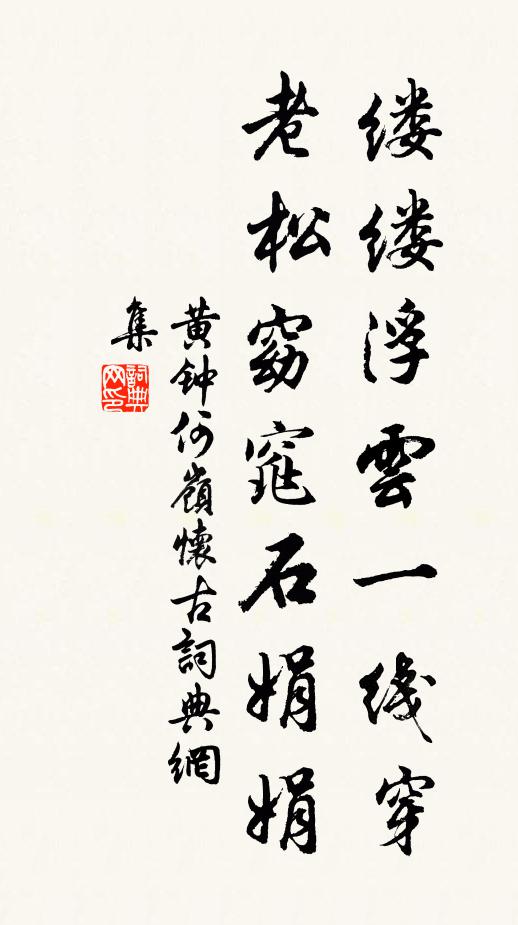 缕缕浮雲一线穿
老松窈窕石娟娟
黄钟何嶺懷古詞典網
集
詞典网印